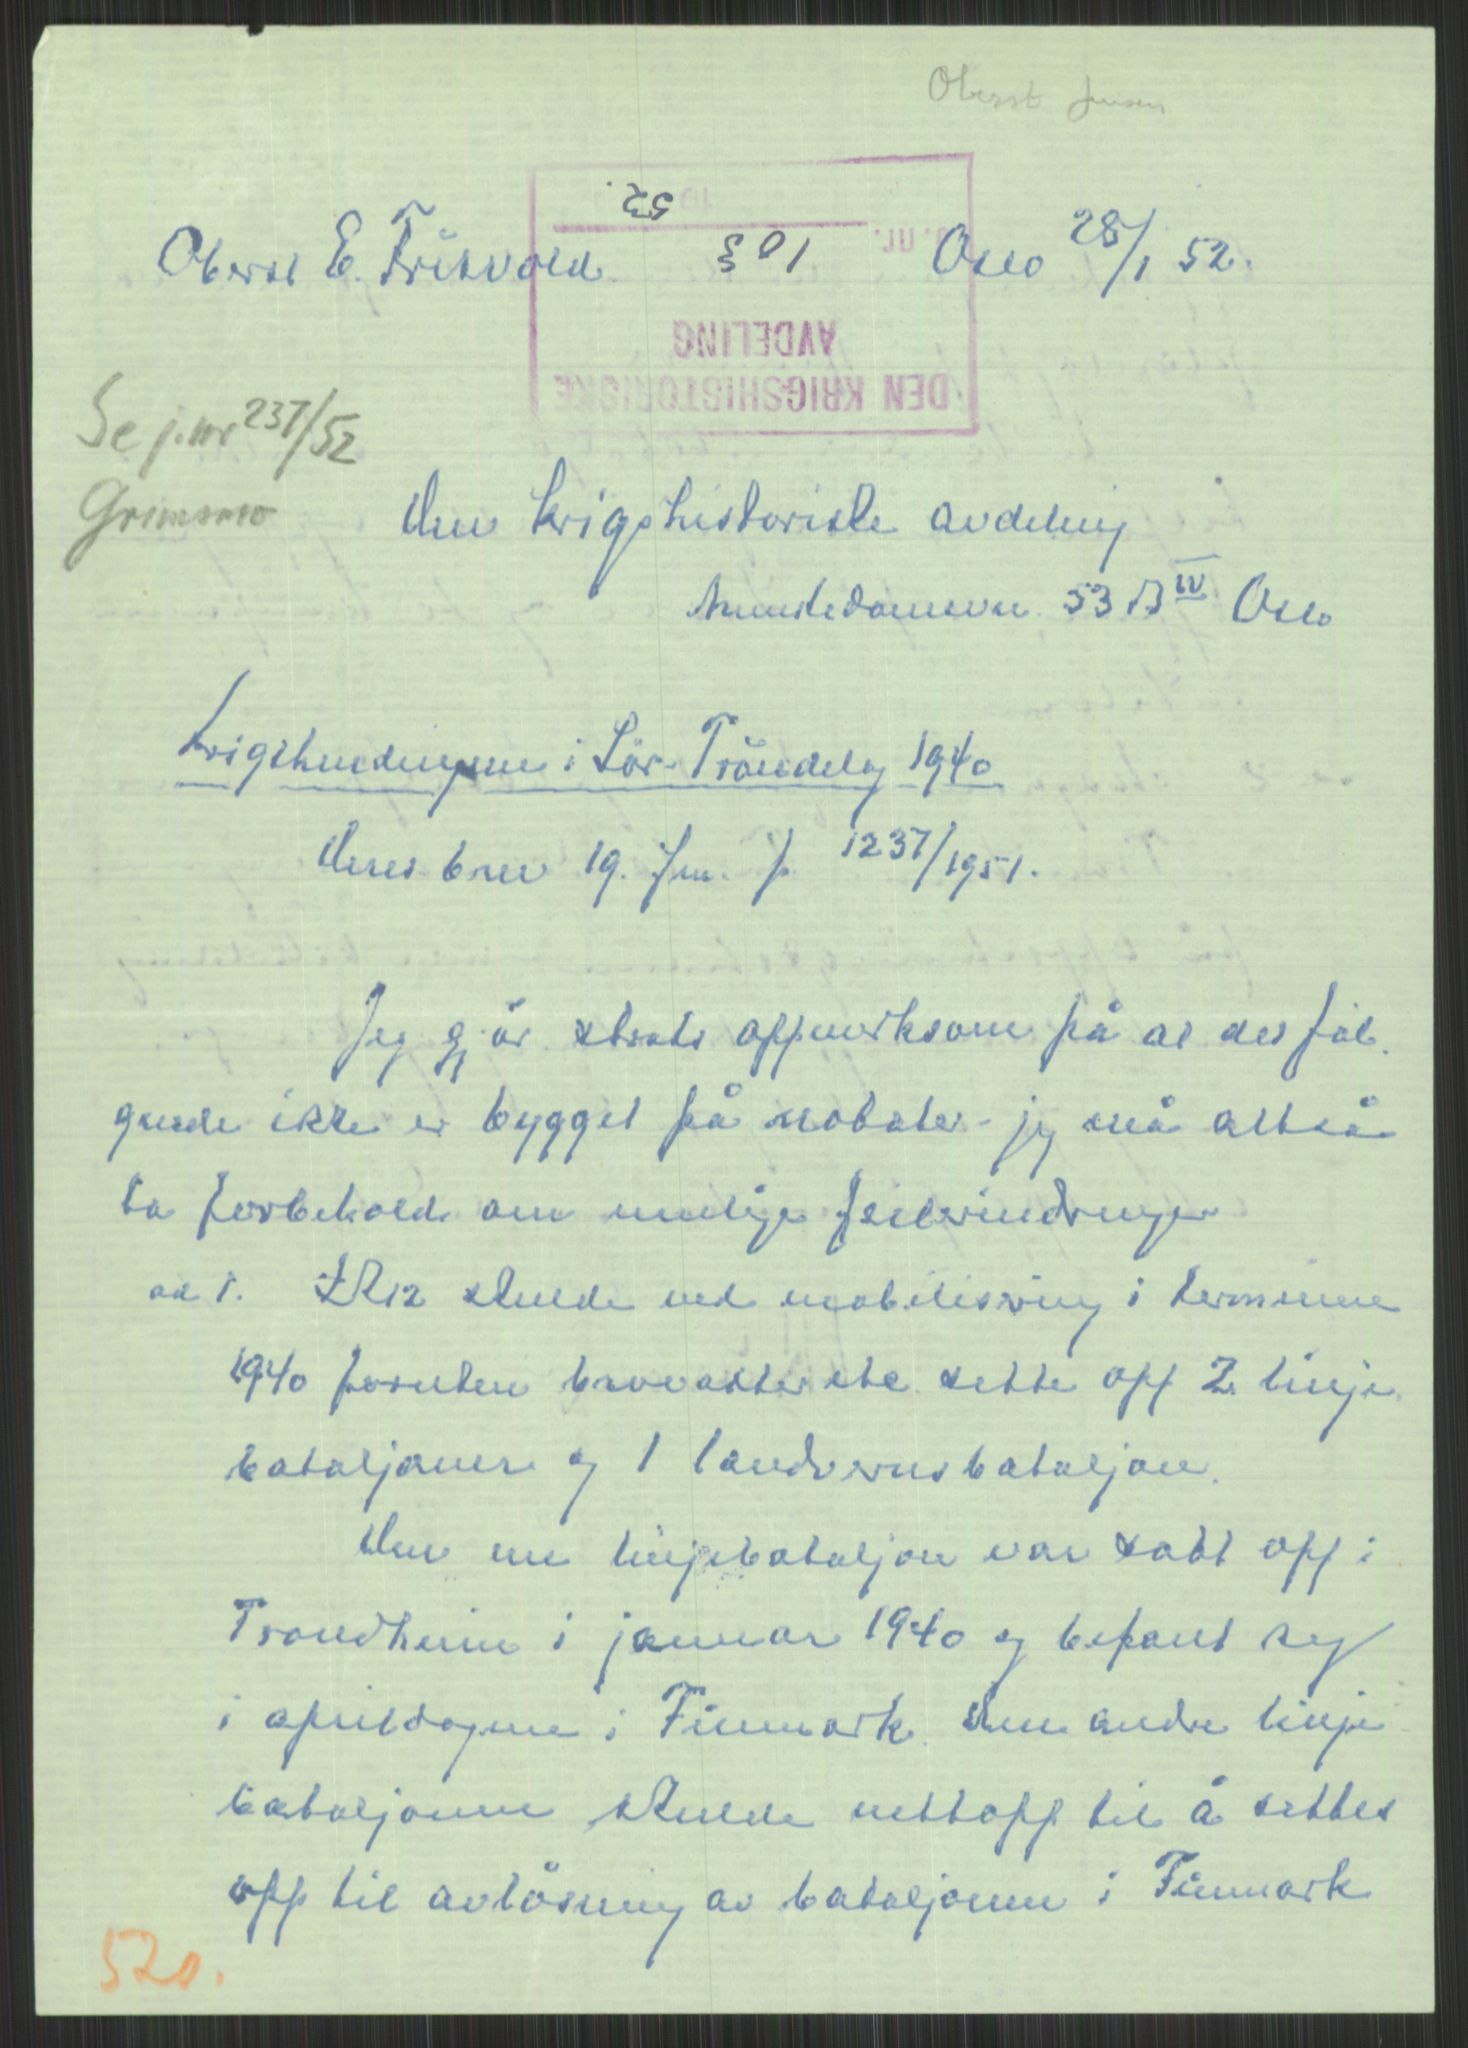 Oberst Jensen
Oberst E. Frisvold. Oslo 28/1 52.
DEN KRIGSHISTORISKE
AVDELING
J. nr. 103
52.
Se j.nr 237/52
Grimsmo
Den krigshistoriske avdeling
Munkedamsvn. 53 B IV Oslo
Krigshendingene i Sör-Tröndelag 1940
Deres brev 19. jan. j. 1237/1951.
Jeg gjör straks oppmerksom på at det föl-
gende ikke er bygget på notater - jeg må altså
ta forbehold om mulige feilerindringer
ad 1. IR12 skulde ved mobilisering i terminen
1940 foruten brovakter etc. sette opp 2 linje
bataljoner og 1 landvernsbataljon.
Den ene linjebataljon var satt opp i
Trondheim i januar 1940 og befant seg
i aprildagene i Finmark. Den andre linje
bataljonen skulde nettopp til å settes
opp til avlösning av bataljonen i Finmark
520.